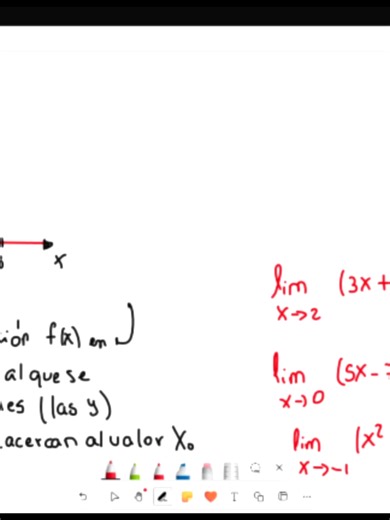 x
ción f(x) en
al que se
es (las y)
acercan al valor X₀
lim (3x +
x→2
lim (5x -
x→0
lim (x²
x→-1